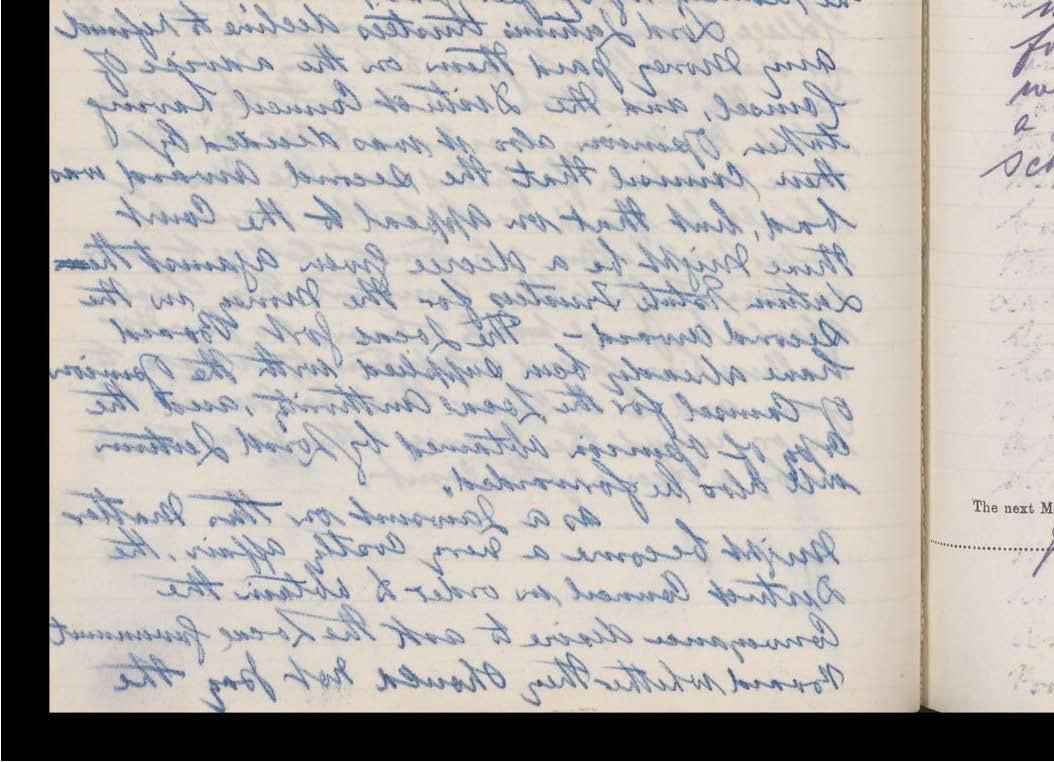 Lord Latham trustees decline to refund
any money paid them on the advice of
Counsel, and the District Council having
taken Opinion also it was decided by
their Counsel that the second Award was
bad, but that on appeal to the Court
there might be a decree given against the
Latham Estate Trustees for the money in the
second award - The Local Govt Board
have already been supplied with the Opinion
of Counsel for the Local Authority, and the
Copy of Opinion obtained by Lord Latham
will also be forwarded.
as a Lawsuit on this matter
might become a very costly affair, the
District Council in order to obtain the
Conveyance desire to ask the Local Government
Board whether they should not pay the
a
sch
The next M